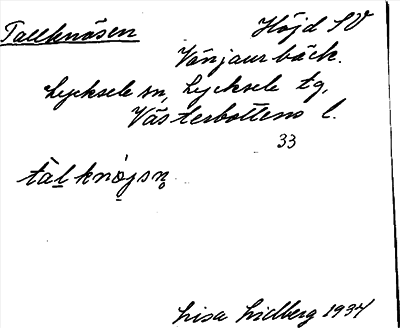 Tallknösen Höjd SV
Vänjaurbäck.
Lycksele sn, Lycksele tg,
Västerbottens l.
33
tàl̲knø̲jsn̥
Lisa Lidberg 1934